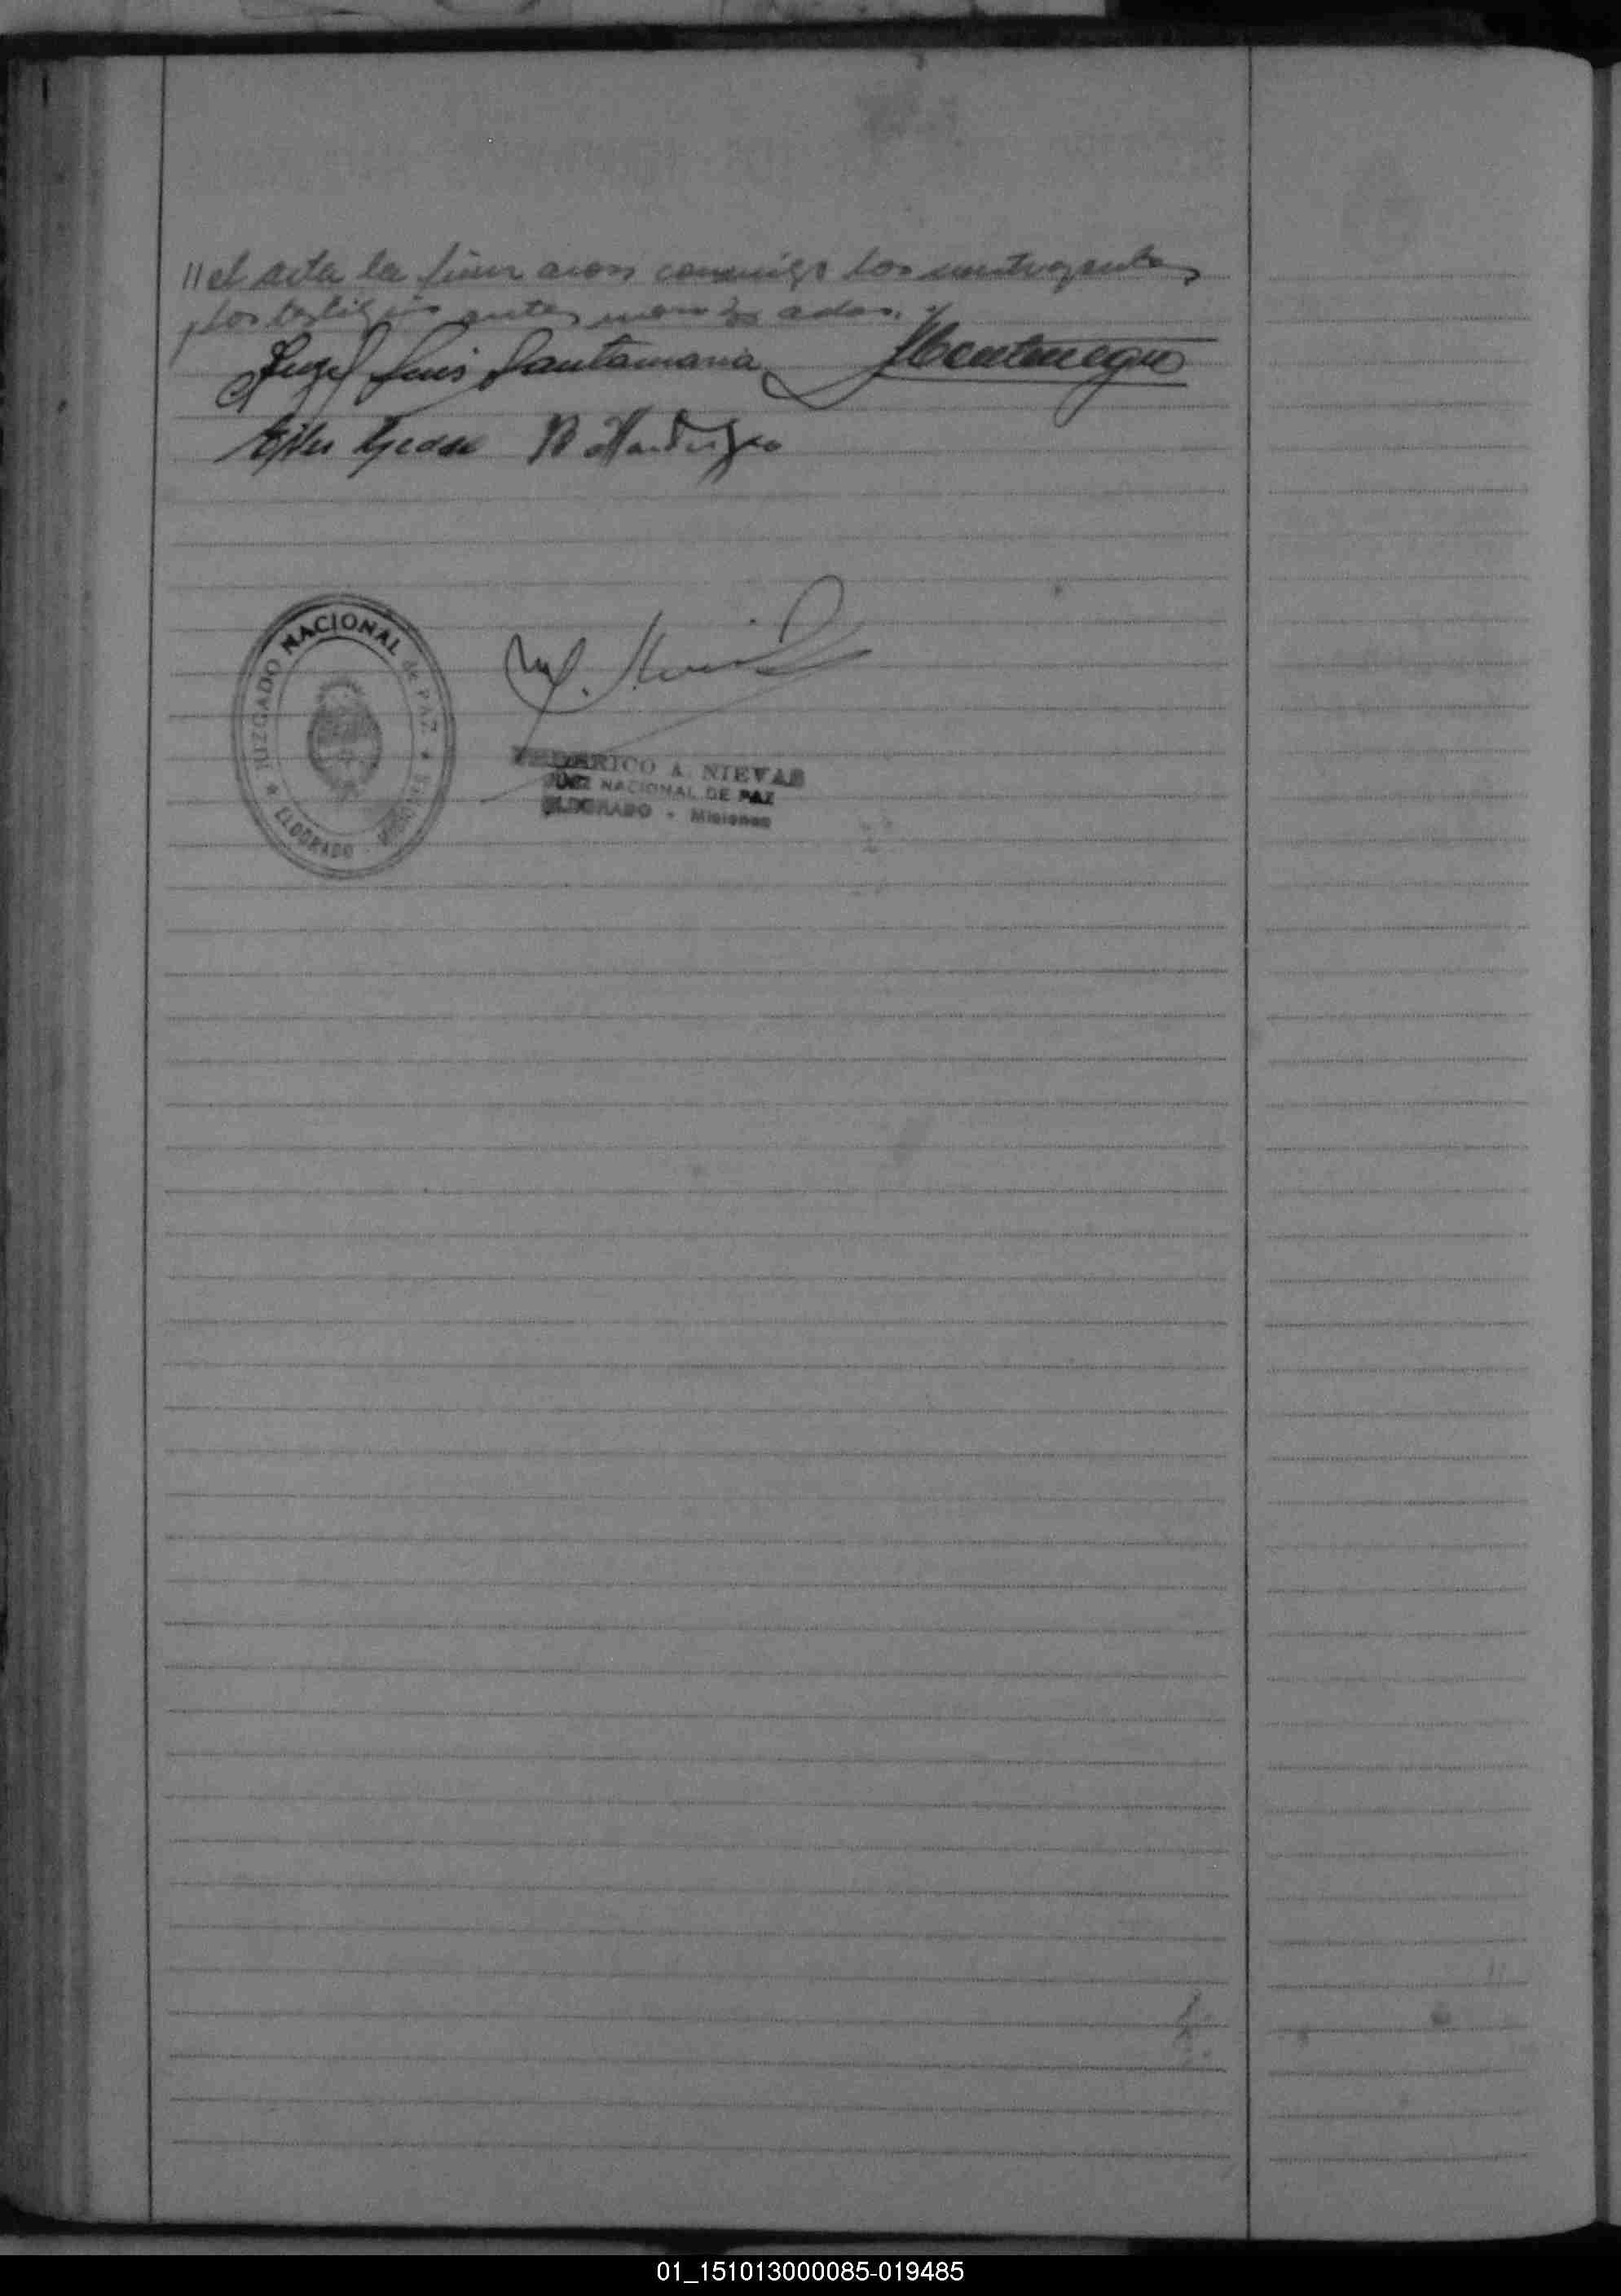 // el acta la firmaron conmigo los contrayentes
y los testigos antes mencionados.
Angel Luis Santamaria Montenegro
JUZGADO NACIONAL de PAZ
ELDORADO - MISIONES
FEDERICO A. NIEVAS
JUEZ NACIONAL DE PAZ
ELDORADO - Misiones
01_151013000085-019485